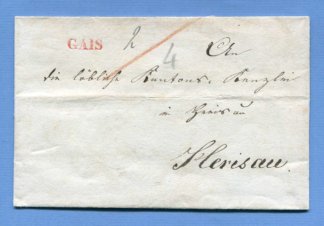 GAIS 2 4 An
die löbliche Kantons-Kanzlei
in Herisau
Herisau.